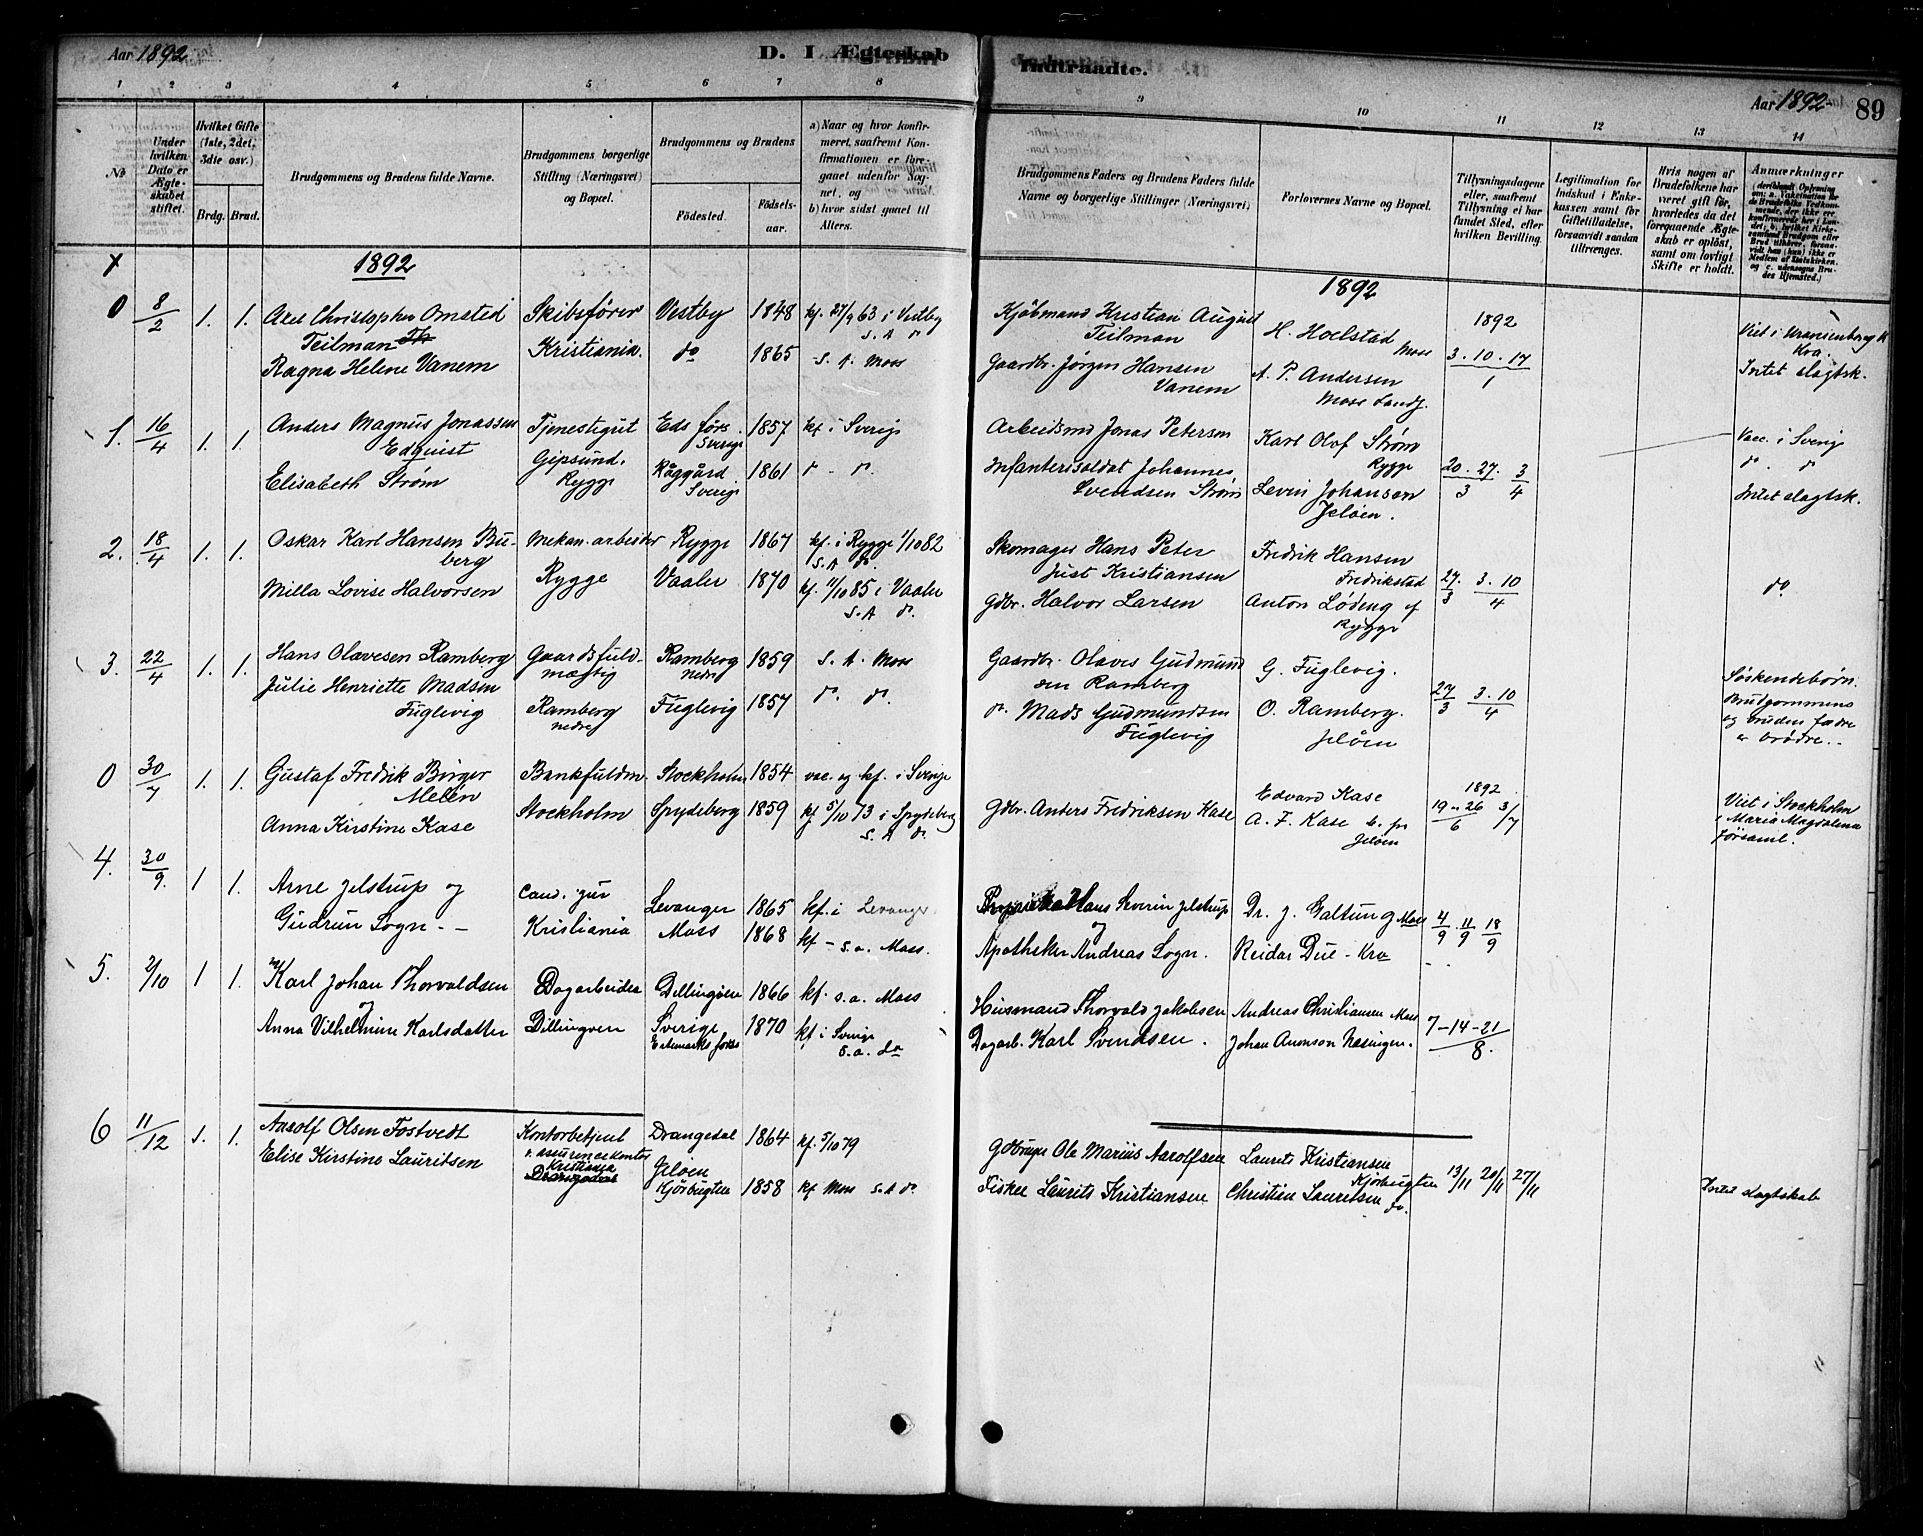 Aar 1892
D. I Ægteskab
Indtraadte.
Aar 1892
89
1 2 3 4 5 6 7 8 9 10 11 12 13 14
No
Under hvilken Dato er Ægteskabet stiftet.
Hvilket Gifte (1ste, 2det, 3die osv.)
Brdg. Brud.
Brudgommens og Brudens fulde Navne.
Brudgommens borgerlige Stilling (Næringsvei) og Bopæl.
Brudgommens og Brudens
Fødested.
Fødselsaar.
a) Naar og hvor konfirmeret, suafremt Konfirmationen er foregaaet udenfor Sognet, og
b) hvor sidst gaaet til Alters.
Brudgommens Faders og Brudens Faders fulde Navne og borgerlige Stillinger (Næringsvei)
Forlovernes Navne og Bopæl.
Tillysningsdagene eller, saafremt Tillysning ei har fundet Sted, efter hvilken Bevilling.
Legitimation for Indskud i Enkekassen samt for Giftetilladelse, forsaavidt saadan tiltrænges.
Hvis nogen af Brudefolkene har været gift før, hvorledes da det foregaaende Ægteskab er opløst, samt om lovligt Skifte er holdt.
Anmærkninger
1892
1892
0 8/2 1. 1. Axel Christopher Omsted Skibsfører Vestby 1848 kf. 27/9 63 i Vestby Kjøbmand Kristian August H. Hoelstad 1892 Viet i Uranienborg K
Teilman Kristiania. s. A do Teilman Moss 3. 10. 17 Kra.
Ragna Helene Vanem do 1865 s. A. Moss Gaardbr. Jørgen Hansen A. P. Andersen 1 Intet slagtsk.
Vanem Moss Landf.
1. 16/4 1. 1. Anders Magnus Jonassen Tjenestegut Eds førs. 1857 kf i Sverige Arbeidsmd Jonas Petersen Karl Olof Strøm Vacc. i Sverig
Edquist Gipsund. Sverige Rygge 20. 27. 3 do. do
Elisabeth Strøm Rygge Råggård 1861 do - do. Infanterisoldat Johannes Levin Johansen 3 4 Intet slagtsk.
Sverige Svendsen Strøm Jeløen.
2. 18/4 1. 1. Oskar Karl Hansen Bu- Mekan. arbeider Rygge 1867 kf. i Rygge 1/10 82 Skomager Hans Peter Fredrik Hansen
berg s. A do. Just Kristiansen Fredrikstad 27. 3. 10 do
Milla Lovise Halvorsen Rygge Vaaler 1870 kf. 11/10 85 i Vaaler Gdbr. Halvor Larsen Anton Lødeng af 3 4
s. A do. Rygge
3. 22/4 1. 1. Hans Olavesen Ramberg Gaardsfuld- Ramberg 1859 s. A. Moss Gaardbr. Olaves Gudmund G. Fuglevig. Søskendebørn.
Julie Henriette Madsen mægtig nedre sen Ramberg 27 3. 10 Brudgommens
Fuglevig Ramberg Fuglevig 1857 do. do. do. Mads Gudmundsen O. Ramberg. 3 4 og bruden fædre
nedre Fuglevig Jeløen er brødre.
0 30/7 1. 1. Gustaf Fredrik Birger Bankfuldm. Stockholm 1854 vac. og kf. i Sverige Edvard Kase 1892 Viet i Stockholm
Melén Gdbr. Anders Fredriksen Kase 19 26 3/7 i Maria Magdalena
Anna Kirstine Kase Stockholm Spydeberg 1859 kf 5/10 73 i Spydeberg A. F. Kase 6 førsaml.
s. A do Jeløen
4. 30/9. 1 1. Arne Jelstrup og cand. jur Levanger 1865 kf. i Levanger Hans Severin Jelstrup Dr. J. Galtung Moss 4/9 . 11/9 18/9
Gudrun Sogn. - Kristiania Moss 1868 kf - s. a. Moss. og Apotheker Andreas Sogn. Reidar Due - Kra
5. 2/10 1 1. Karl Johan Thorvaldsen Dagarbeider Dillingøen 1866 kf. s. a. Moss Husmand Thorvald Jakobsen Andreas Christiansen Moss
og 7 - 14 - 21
Anna Vilhelmine Karlsdatter Dillingøen Sverige 1870 kf i Sverige Dagarb. Karl Svendsen. Johan Aronson Næsingen. 8.
s. a. do
6 11/12 1. 1. Aarolf Olsen Tostvedt Kontorbetjent Drangedal 1864 kf. 5/10 79 Gdbruger Ole Marius Aarolfsen Laurits Kristiansen
Elise Kirstine Lauritsen i assurencekontor Jeløen Kjørbugten 13/11 20/11 27/11
Kristiania Kjørbugten 1858 kf Moss s. A do. Fisker Laurits Kristiansen Christian Lauritsen do. Intet slagtskab